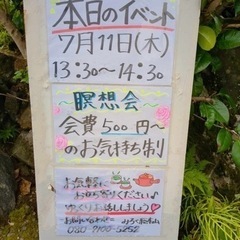 本日のイベント
7月11日(木)
13:30〜14:30
瞑想会
会費500円〜
のお気持ち制
お気軽に
お立ち寄りください♪
ゆっくりお話ししましょう